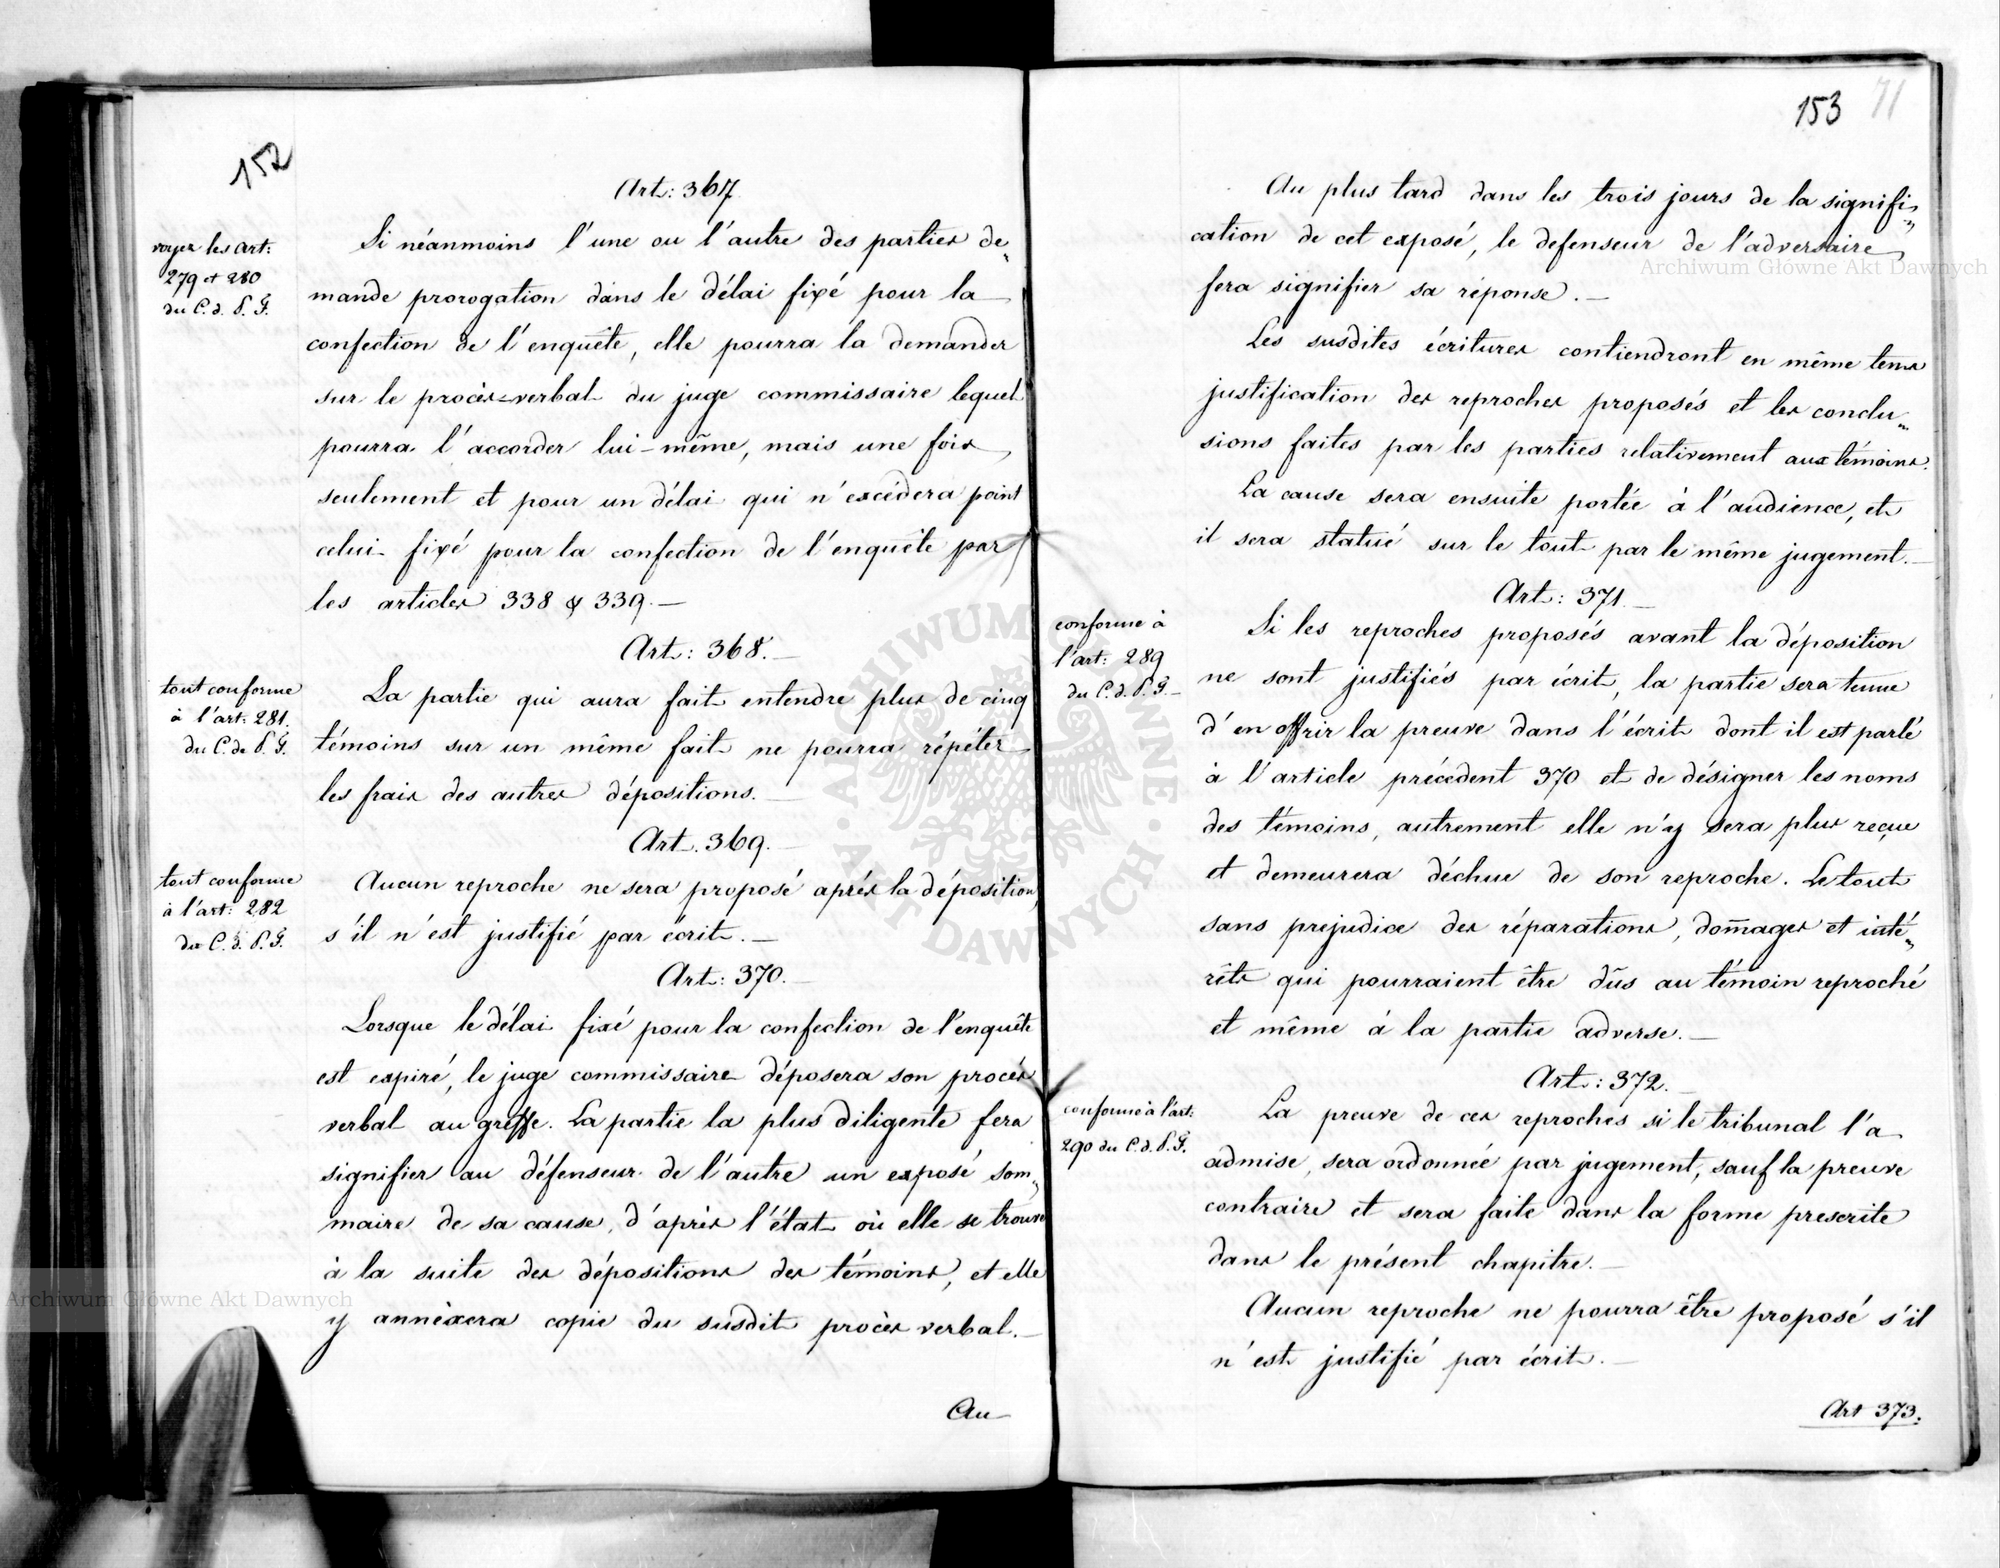 152
Art: 367.
voyez les art:
279 et 280
du C. d. P. G.
Si néanmoins l'une ou l'autre des parties de„
mande prorogation dans le délai fixé pour la
confection de l'enquête, elle pourra la demander
sur le procès-verbal du juge commissaire lequel
pourra l'accorder lui-même, mais une fois
seulement et pour un délai qui n'excédera point
celui fixé pour la confection de l'enquête par
les articles 338 & 339.—
Art: 368.—
tout conforme
à l'art. 281.
du C. de P. G.
La partie qui aura fait entendre plus de cinq
témoins sur un même fait ne pourra répéter
les frais des autres dépositions.—
Art. 369.—
tout conforme
à l'art: 282
du C. d. P. G.
Aucun reproche ne sera proposé après la déposition,
s'il n'est justifié par écrit.—
Art: 370.—
Lorsque le délai fixé pour la confection de l'enquête
est expiré, le juge commissaire déposera son procès
verbal au greffe. La partie la plus diligente fera
signifier au défenseur de l'autre un exposé som„
maire de sa cause, d'après l'état où elle se trouve
à la suite des dépositions des témoins, et elle
y annèxera copie du susdit procès verbal.—
Au
153
71
Au plus tard dans les trois jours de la signifi„
cation de cet exposé, le defenseur de l'adversaire
fera signifier sa réponse.—
Les susdites écritures contiendront en même tems
justification des reproches proposés et les conclu„
sions faites par les parties relativement aux témoins.
La cause sera ensuite portée à l'audience, et
il sera statué sur le tout par le même jugement.—
Art: 371.—
conforme à
l'art: 289
du C. d. P. G.—
Si les reproches proposés avant la déposition
ne sont justifiés par écrit, la partie sera tenue
d'en offrir la preuve dans l'écrit dont il est parlé
à l'article précédent 370 et de désigner les noms
des témoins, autrement elle n'y sera plus reçue
et demeurera déchue de son reproche. Le tout
sans prejudice des réparations, dom̄ages et inté„
rêts qui pourraient être dûs au témoin reproché
et même à la partie adverse.—
Art: 372.—
conforme à l'art:
290 du C. d. P. G.
La preuve de ces reproches si le tribunal l'a
admise, sera ordonnée par jugement, sauf la preuve
contraire et sera faite dans la forme prescrite
dans le présent chapitre.—
Aucun reproche ne pourra être proposé s'il
n'est justifié par écrit.—
Art 373.
Archiwum Główne Akt Dawnych
Archiwum Główne Akt Dawnych
ARCHIWUM GŁÓWNE · AKT DAWNYCH ·